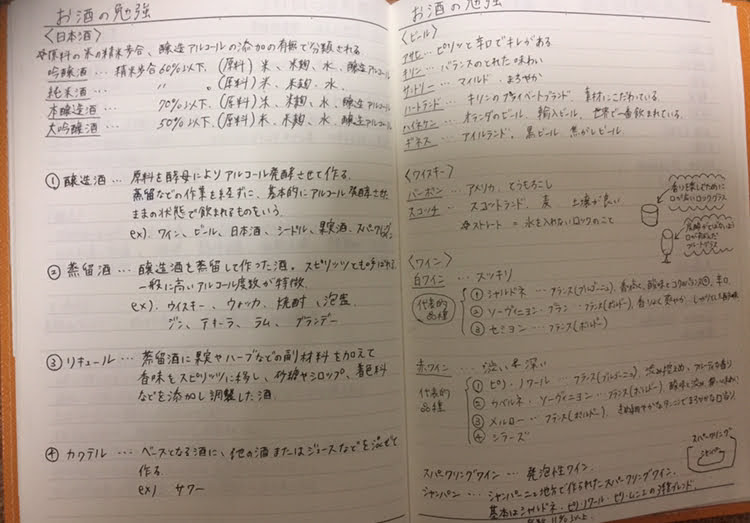 お酒の勉強
〈日本酒〉
※原料の米の精米歩合、醸造アルコールの添加の有無で分類される
吟醸酒 … 精米歩合60%以下、(原料)米、米麹、水、醸造アルコール
純米酒 … 〃 、(原料)米、米麹、水、
本醸造酒 … 70%以下、(原料)米、米麹、水、醸造アルコール
大吟醸酒 … 50%以下、(原料)米、米麹、水、醸造アルコール
① 醸造酒 … 原料を酵母によりアルコール発酵させて作る。
蒸留などの作業を経ずに、基本的にアルコール発酵させた
ままの状態で飲まれるものをいう。
ex). ワイン、ビール、日本酒、シードル、果実酒、スパークリング
② 蒸留酒 … 醸造酒を蒸留して作った酒。スピリッツとも呼ばれて
一般に高いアルコール度数が特徴。
ex). ウイスキー、ウォッカ、焼酎、泡盛
ジン、テキーラ、ラム、ブランデー
③ リキュール … 蒸留酒に果実やハーブなどの副材料を加えて
香味をスピリッツに移し、砂糖やシロップ、着色料
などを添加し調製した酒。
④ カクテル … ベースとなる酒に、他の酒またはジュースなどを混ぜて
作る。
ex) サワー
お酒の勉強
〈ビール〉
アサヒ … ピリッと辛口でキレがある
キリン … バランスのとれた味わい
サントリー … マイルド、まろやか
ハートランド … キリンのプライベートブランド、素材にこだわっている。
ハイネケン … オランダのビール、輸入ビール、世界で一番飲まれている。
ギネス … アイルランド、黒ビール、焦がしビール。
〈ウイスキー〉
バーボン … アメリカ、とうもろこし
スコッチ … スコットランド、麦、土壌が良い
※ストレート = 水を入れないロックのこと
香りを楽しむために
口が広いロックグラス
フルートグラス
〈ワイン〉
白ワイン … スッキリ
代表的
品種
① シャルドネ … フランス(ブルゴーニュ)、
② ソーヴィニヨン・ブラン … フランス(ボルドー)、香りよく爽やか、
③ セミヨン … フランス(ボルドー)
赤ワイン … 渋い・深い
代表的
品種
① ピノ・ノワール … フランス(ブルゴーニュ)、渋み控えめ、フルーティな香り
② カベルネ・ソーヴィニヨン … フランス(ボルドー)、酸味と渋み
③ メルロー … フランス(ボルドー)、きめ細やかなタンニンでまろやかな口当り
④ シラーズ
スパークリング
シャンパン
スパークリングワイン … 発泡性ワイン。
シャンパン … シャンパーニュ地方で作られたスパークリングワイン。
基本はシャルドネ・ピノ・ノワール・ピノ・ムニエの3種ブレンド。